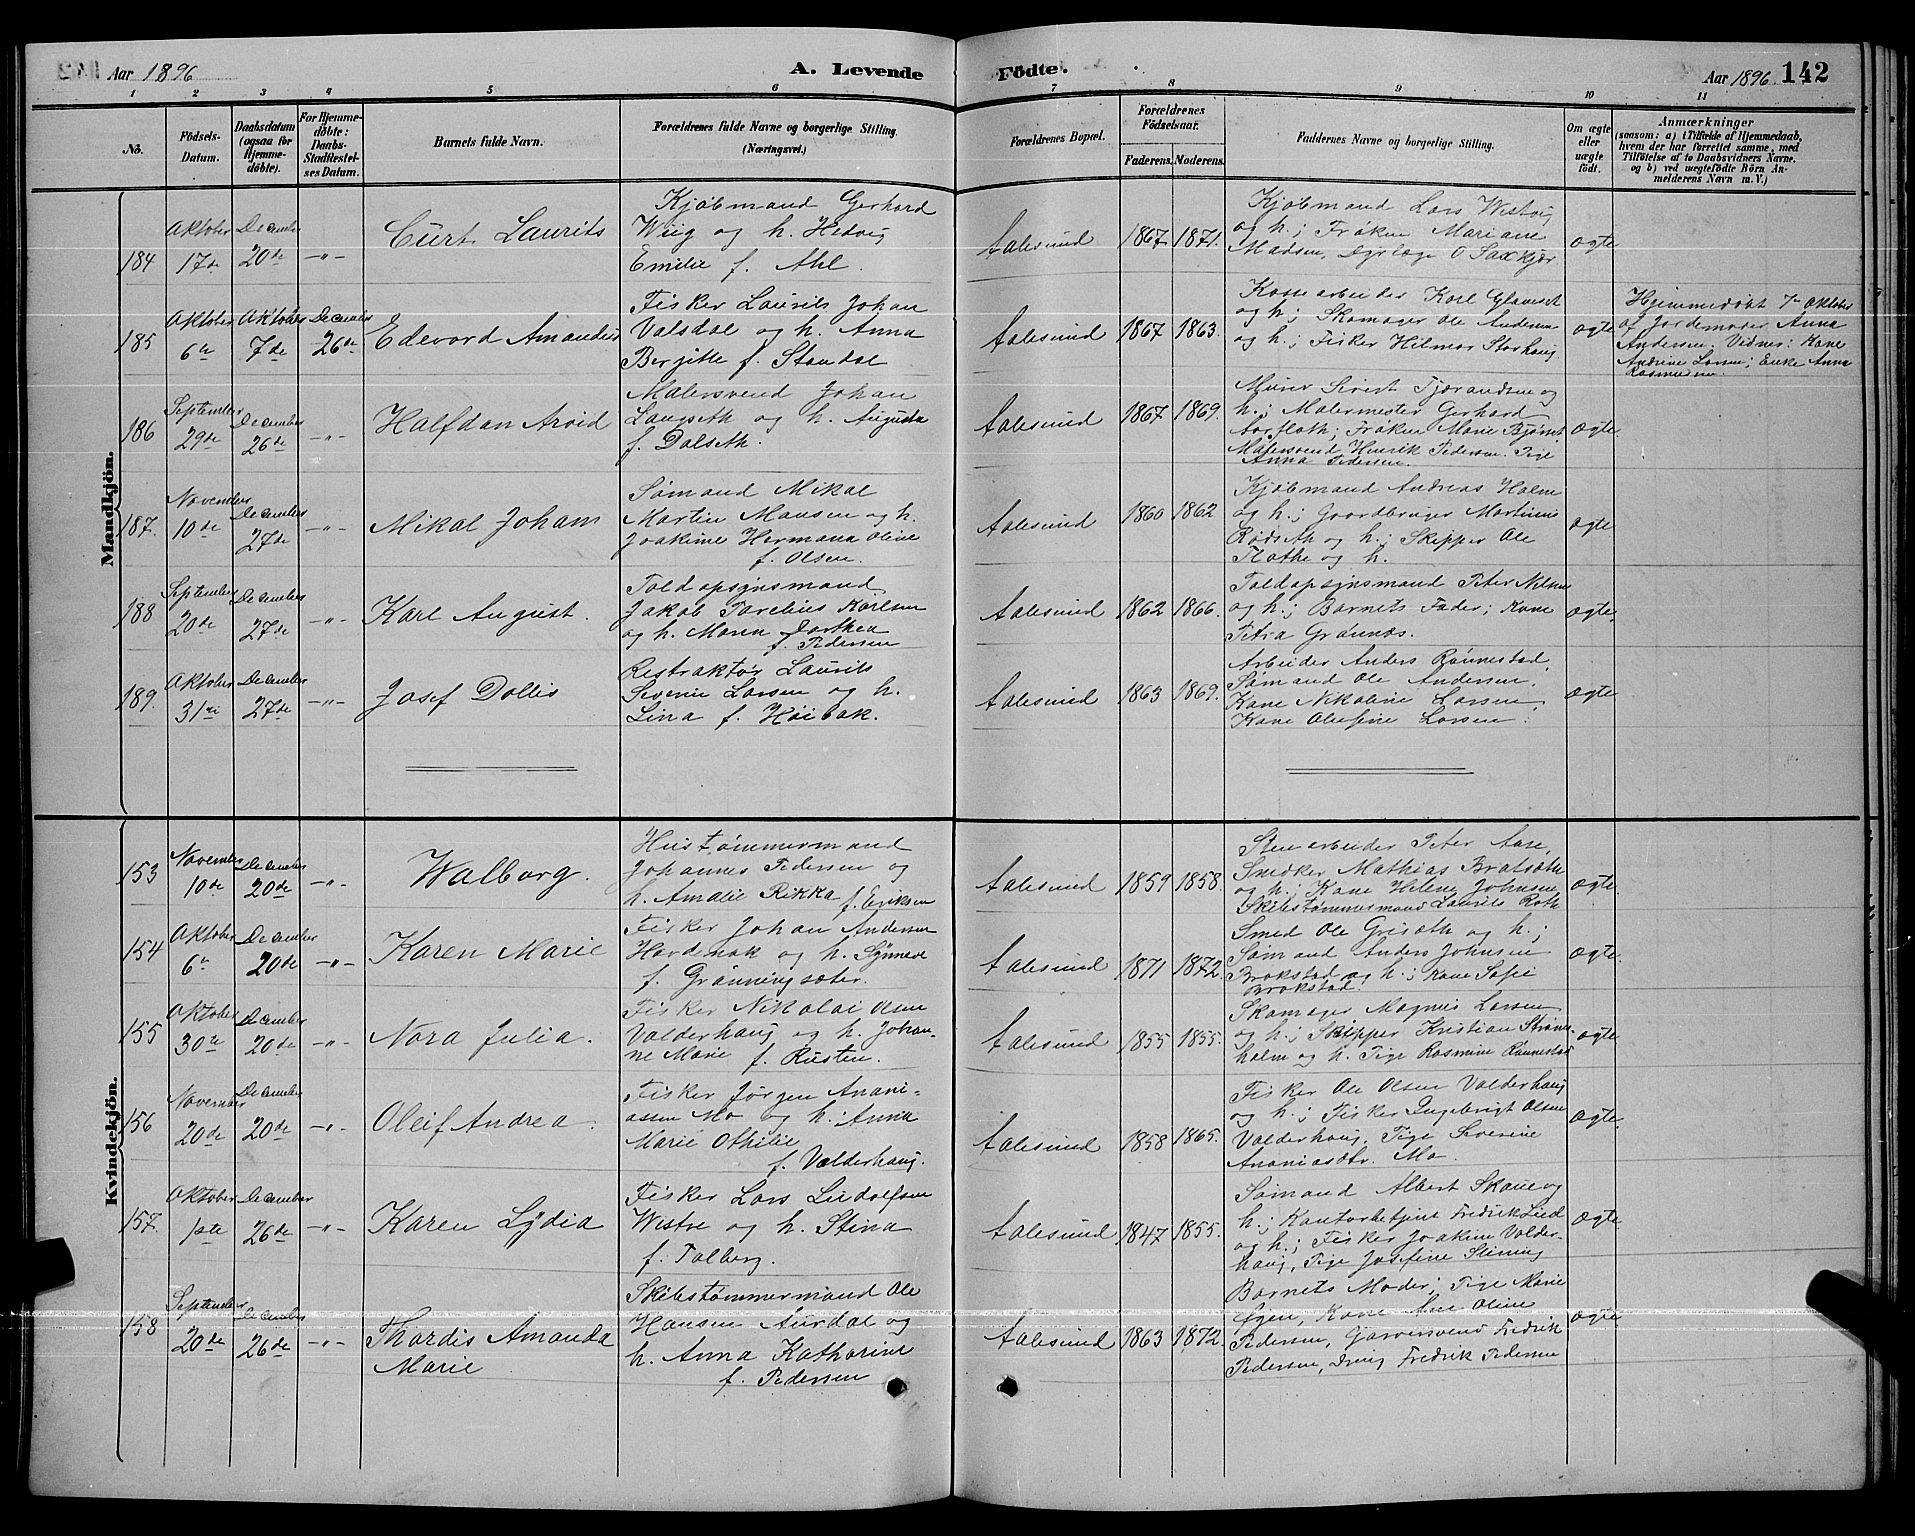 Aar 1896
A. Levende
Födte.
Aar 1896. 142
1 2 3 4 5 6 7 8 9 10 11
No.
Födsels-
Datum.
Daabsdatum
(ogsaa för
Hjemme-
döbte).
For Hjemme-
döbte:
Daabs-
Stadfæstel-
ses Datum.
Barnets fulde Navn.
Forældrenes fulde Navne og borgerlige Stilling.
(Næringsvei.)
Forældrenes Bopæl.
Forældrenes
Födselsaar.
Faderens. Moderens.
Faddernes Navne og borgerlige Stilling.
Om ægte
eller
uægte
födt.
Anmærkninger
(saasom: a) i Tilfælde af Hjemmedaab,
hvem der har forrettet samme, med
Tilföielse af to Daabsvidners Navne.
og b) ved uægtefödte Börn An-
melderens Navn m. V.)
Mandkjön.
184
Oktober
17de
December
20de
-"-
Curt Laurits
Kjøbmand Gerhard
Wiig og h. Hedvig
Emilie f. Ahl.
Aalesund
1867 1871.
Kjøbmand Lars Westvig
og h; Frøken Mariane
Madsen, Dyrlæge O Saxkjær
ægte
185
Oktober
6te
Oktober
7de
December
26de
Edevard Amandus
Fisker Laurits Johan
Valsdal og h. Anna
Bergitte f. Standal
Aalesund
1867 1863.
arbeider Karl
og h; Skomager Ole Andersen
og h; Fisker Hilmar Storhaug
ægte
Hjemmedøbt 7de Oktober
af Jordemoder Anna
Andersen. Vidner: Kone
Andrine Larsen; Enke Anna
Rasmussen
186
September
29de
December
26de
-"-
Halfdan Arvid
Malersvend Johan
Langseth og h. Augusta
f. Dalseth.
Aalesund
1867 1869.
Murer Sivert Tjørandsen og
h.; Malermester Gerhard
Aarfloth; Frøken Marie
Malersvend Henrik Pedersen. Pige
Anna Pedersen.
ægte.
187.
November
10de
December
27de
-"-
Mikal Johan
Sømand Mikal
Martin Hansen og h.
Joakime Hermana Oline
f. Olsen.
Aalesund
1860 1862
Kjøbmand Andreas Holm
og h.; Gaardbruger Martinus
Rødseth og h.; Skipper Ole
Flathe og h.
ægte
188
September
20de
December
27de
-"-
Karl August.
Toldopsynsmand
Jakob Karlsen
og h. Maren Dorthea
f. Pedersen
Aalesund
1862 1866.
Toldopsynsmand Peter Nilsen
og h.; Barnets Fader; Kone
Petra Grønnes.
ægte.
189.
Oktober
31te
December
27de
-"-
Josef Dollis
Restraktør Laurits
Severin Larsen og h.
Lina f. Høibak.
Aalesund
1863 1869.
Arbeider Anders Rønnestad,
Sømand Ole Andersen.
Kone Nikoline Larsen,
Kone Olufine Larsen.
ægte
Kvindekjön.
153
November
10de
December
20de
-"-
Walborg.
Hustømmermand
Johannes Pedersen og
h. Amalie Rikka f. Eriksen
Aalesund
1859 1858.
Stenarbeider Peter Aase,
Snedker Mathias Bratseth
og h.; Kone Helene Johnsen
Skibstømmermand Laurits Roth
ægte.
154
Oktober
6te
December
20de
-"-
Karen Marie
Fisker Johan Andersen
Hardenak og h. Synneve
f. Grønningsæter.
Aalesund
1871 1872.
Smed Ole Griseth og h;
Sømand Anders Johnsen
Brokstad og h.; Kone Sofie
Brokstad.
ægte.
155
Oktober
30te
December
20de
-"-
Nora Julia.
Fisker Nikolai Olsen
Valderhaug og h. Johan-
ne Marie f. Rusten.
Aalesund
1855 1855.
Skomager Magnus Larsen
og h.; Skipper Kristian Strøm-
holm og h. Pige Rasmine Rønnestad
ægte
156
November
20de
December
20de
-"-
Oleif Andrea.
Fisker Jørgen Anani-
assen Mo og h. Anna
Marie Othilie
f. Valderhaug.
Aalesund
1858 1865.
Fisker Ole Olsen Valderhaug
og h.; Fisker Ingebrigt Olsen
Valderhaug. Pige Severine
Ananiasdtr. Mo.
ægte.
157.
Oktober
1ste
December
26de
-"-
Karen Lydia
Fisker Lars Ludolfsen
Westre og h. Stina
f. Talberg.
Aalesund
1847 1855.
Sømand Albert Skare og
h.; Kontorbetjent Fredrik Lied
og h.; Fisker Joakim Valder-
haug, Pige Josefine Slining
ægte
158
September
20de
December
26de
-"-
Thordis Amanda
Marie
Skibstømmermand Ole
Hansen Aurdal og
h. Anna Katharine
f. Pedersen
Aalesund
1863 1872.
Barnets Moder; Pige Marie
Øgen, Kone Ane Oline
Pedersen, Garversvend Fredrik
Pedersen, Dreng Fredrik Pedersen
ægte